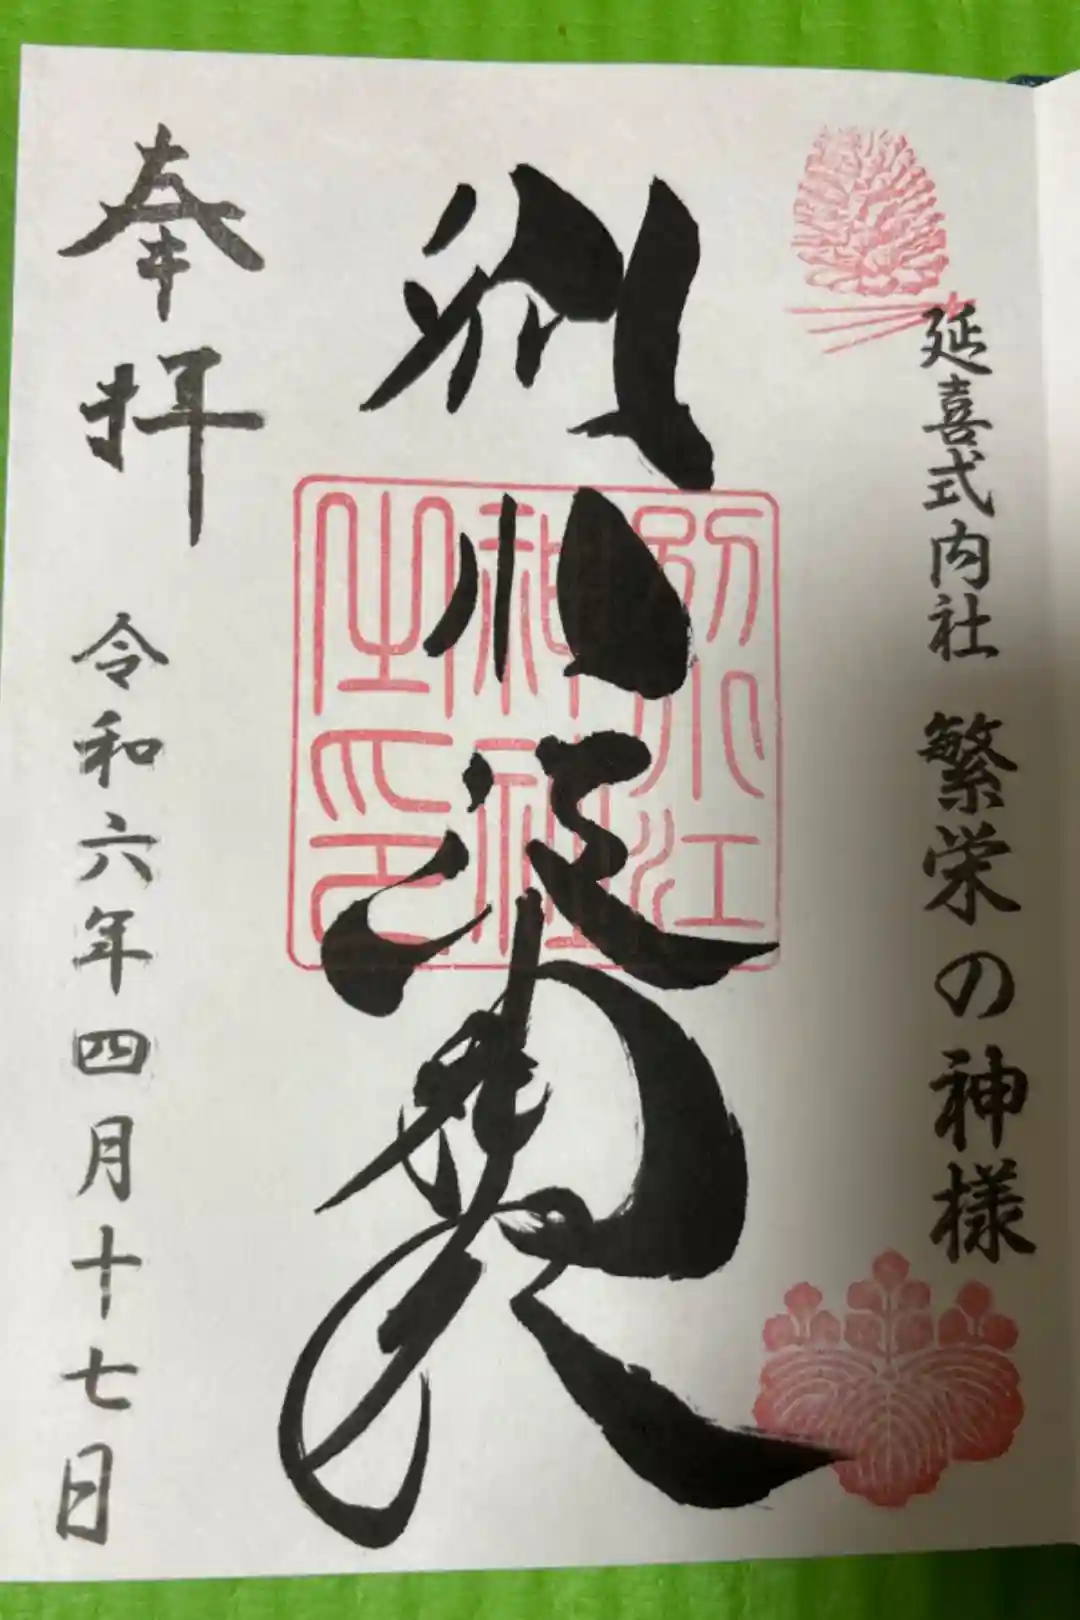 延喜式内社 繁栄の神様
別小江神社
別小江
神社
之印
奉拝
令和六年四月十七日